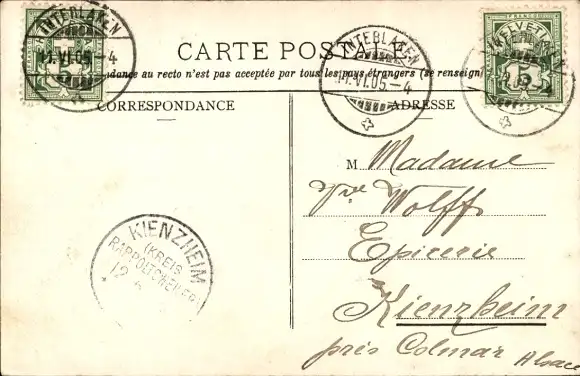 CARTE POSTALE
dance au recto n'est pas acceptée par tous les pays étrangers (se renseign
CORRESPONDANCE
ADRESSE
INTERLAKEN
11.VI.05.–4
INTERLAKEN
11.VI.05.–4
HELVETIA
M Madame
Vve Wolff
Epicerie
Kienzheim
près Colmar Alsace
KIENZHEIM
(KREIS
12